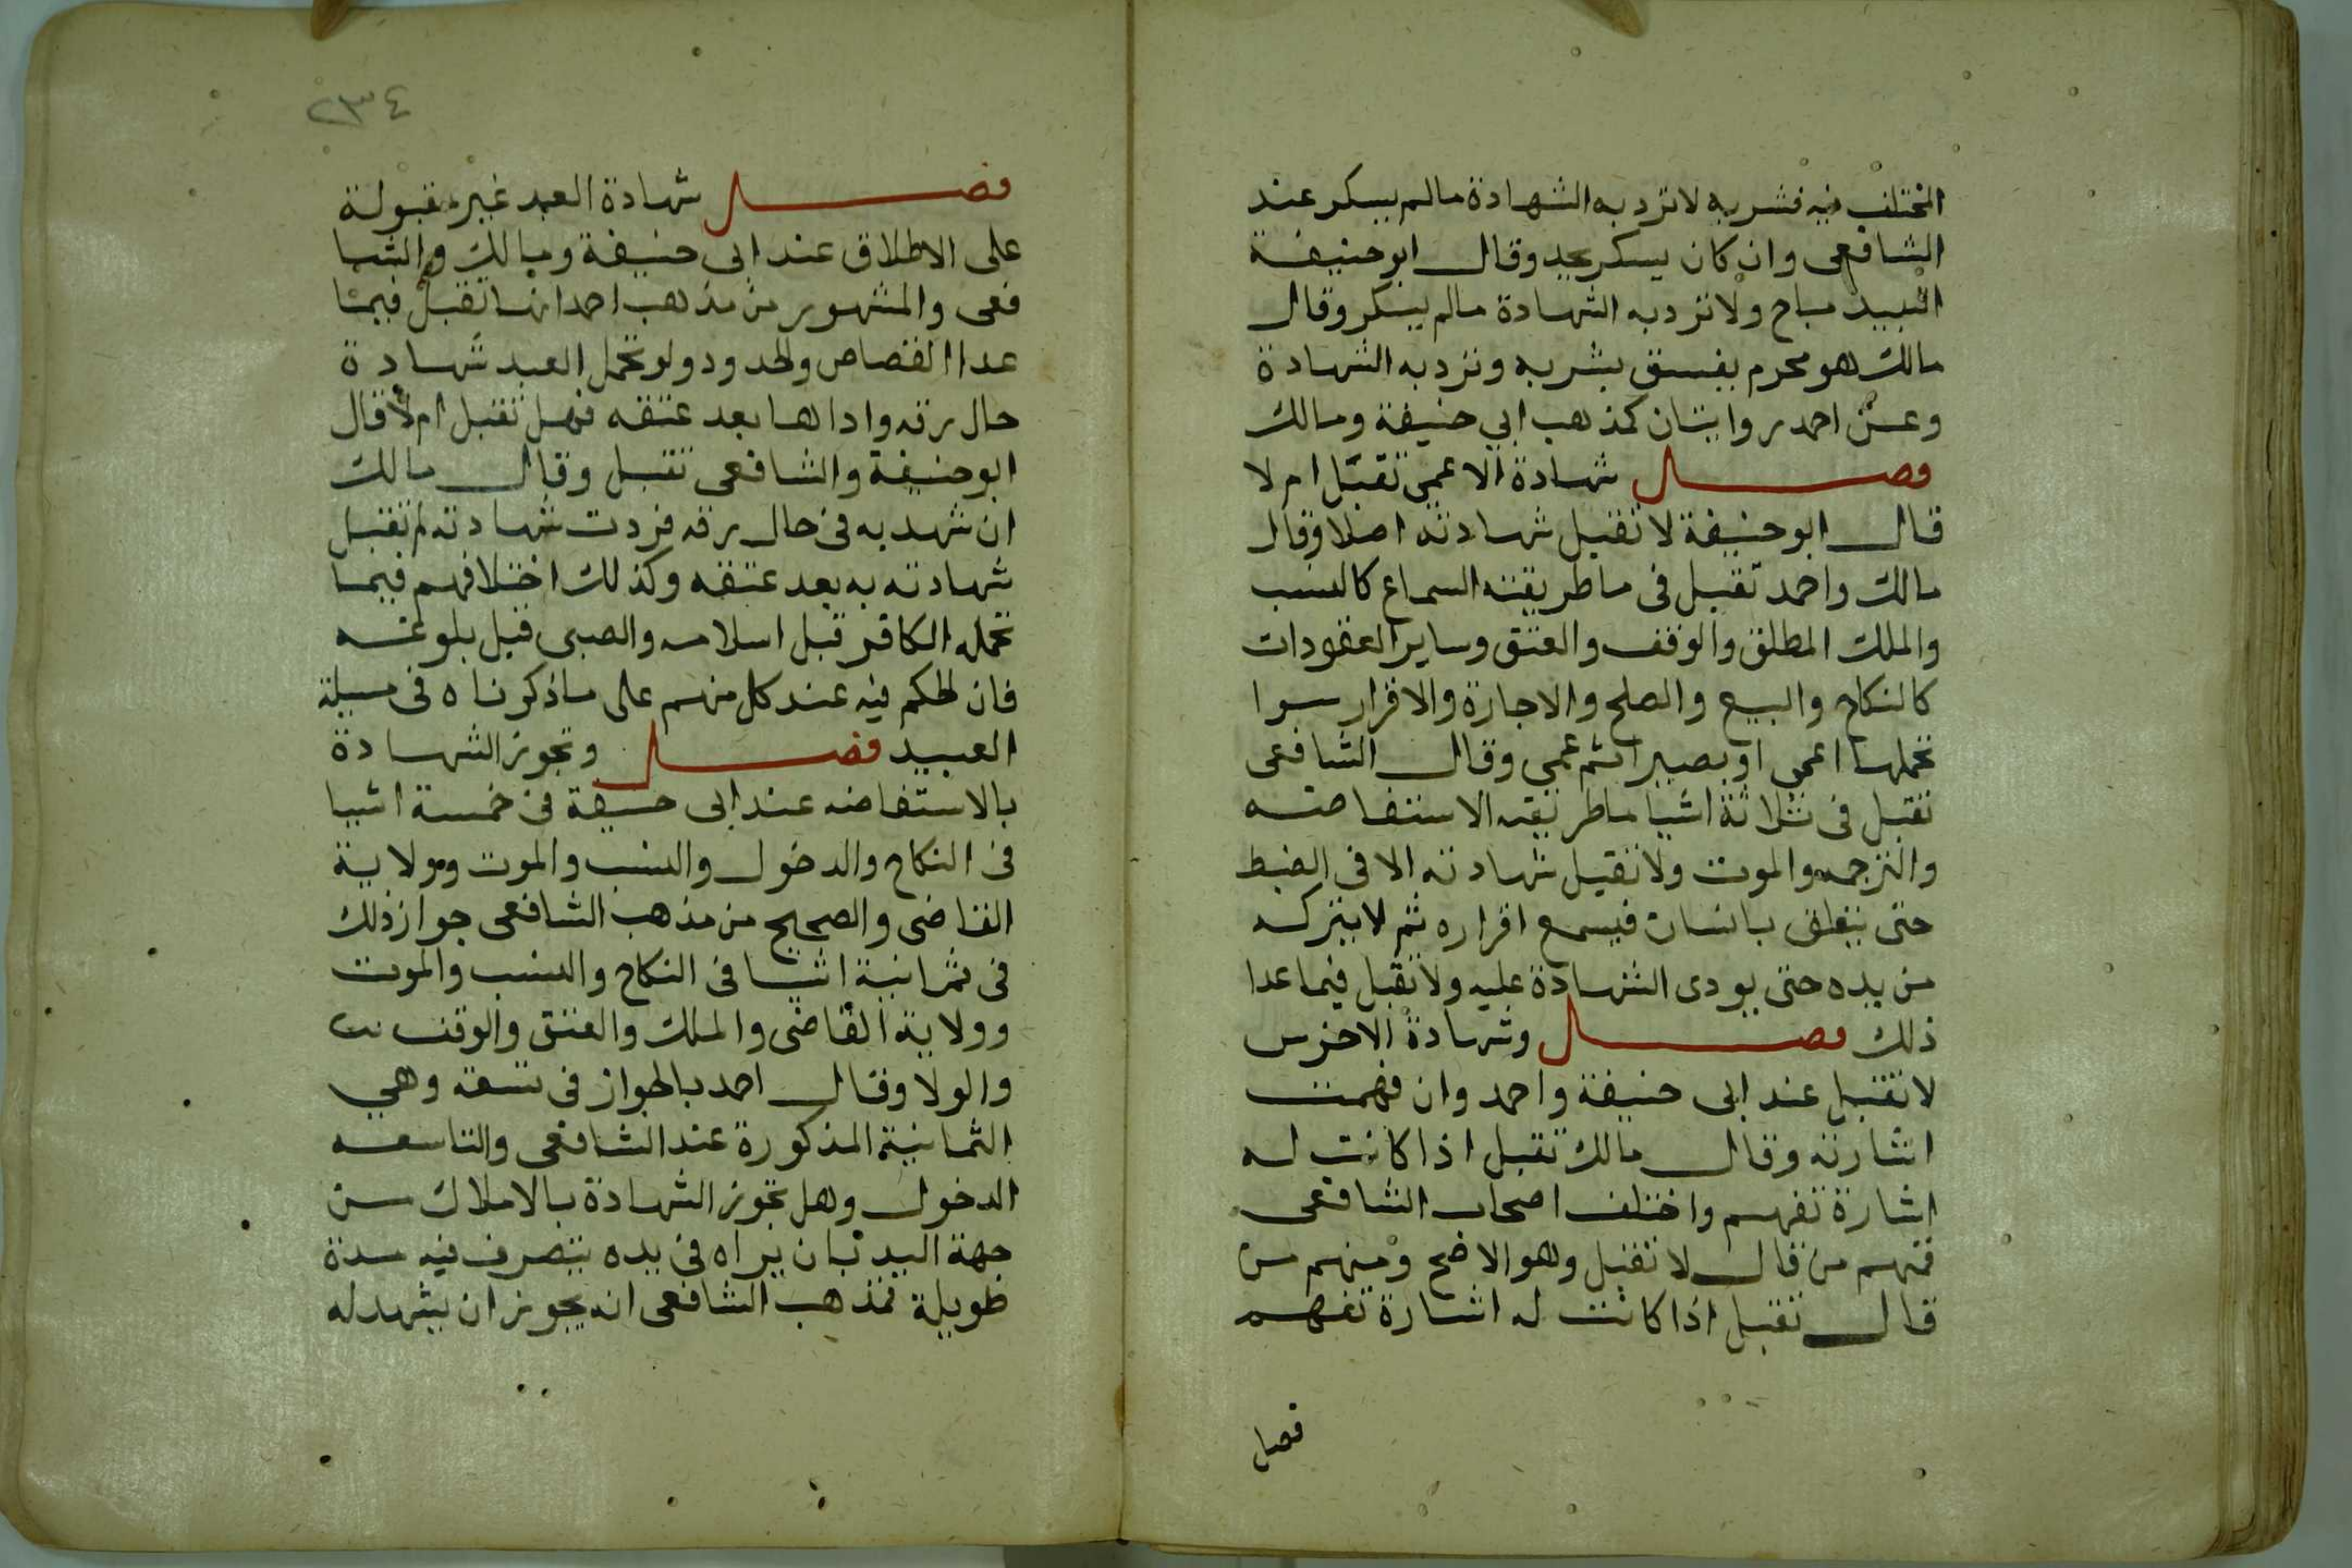 المختلف فيه فشربه لا ترد به الشهادة مالم يسكر عند
الشافعى وان كان يسكر يحد وقال ابو حنيفة
النبيد مباح ولا ترد به الشهادة مالم يسكر وقال
مالك هو محرم يفسق بشربه وترد به الشهادة
وعن احمد روايتان كمذهب ابي حنيفة ومالك
فصل شهادة الاعمى تقبل ام لا
قال ابو حنيفة لا تقبل شهادته اصلا وقال
مالك واحمد تقبل فى ما طريقته السماع كالنسب
والملك المطلق والوقف والعتق وساير العقودات
كالنكاح والبيع والصلح والاجارة والاقرار سوا
تحملها اعمى او بصيرا ثم عمى وقال الشافعى
تقبل فى ثلاثة اشيا ما طريقته الاستفاضه
والترجمه والموت ولا تقبل شهادته الا فى الضبط
حتى يتعلق بانسان فيسمع اقراره ثم لا يتركه
من يده حتى يودى الشهادة عليه ولا تقبل فيما عدا
ذلك فصل وشهادة الاخرس
لا تقبل عند ابى حنيفة واحمد وان فهمت
اشارته وقال مالك تقبل اذا كانت له
اشارة تفهم واختلف اصحاب الشافعى
فمنهم من قال لا تقبل وهو الاضح ومنهم من
قال تقبل اذا كانت له اشارة تفهم
فصل
٢٣٤
فصل شهادة العبد غير مقبولة
على الاطلاق عند ابى حنيفة ومالك والشا
فعى والمشهور من مذهب احمد انها تقبل فيما
عدا القصاص والحدود ولو تحمل العبد شهادة
حال رقه واداها بعد عتقه فهل تقبل ام لا قال
ابو حنيفة والشافعى تقبل وقال مالك
ان شهد به فى حال رقه فردت شهادته لم تقبل
شهادته به بعد عتقه وكذلك اختلافهم فيما
تحمله الكافر قبل اسلامه والصبى قبل بلوغه
فان الحكم فيه عند كل منهم على ما ذكرناه فى مسيلة
العبيد فصل وتجوز الشهادة
بالاستفاضه عند ابى حنيفة فى خمسة اشيا
فى النكاح والدخول والنسب والموت وولاية
القاضى والصحيح من مذهب الشافعى جواز ذلك
فى ثمانية اشيا فى النكاح والنسب والموت
وولاية القاضى والملك والعتق والوقف
والولا وقال احمد بالجواز فى تسعة وهي
الثمانية المذكورة عند الشافعى والتاسعه
الدخول وهل تجوز الشهادة بالاملاك من
جهة اليد بان يراه فى يده يتصرف فيه مدة
طويلة فمذهب الشافعى انه يجوز ان يشهد له